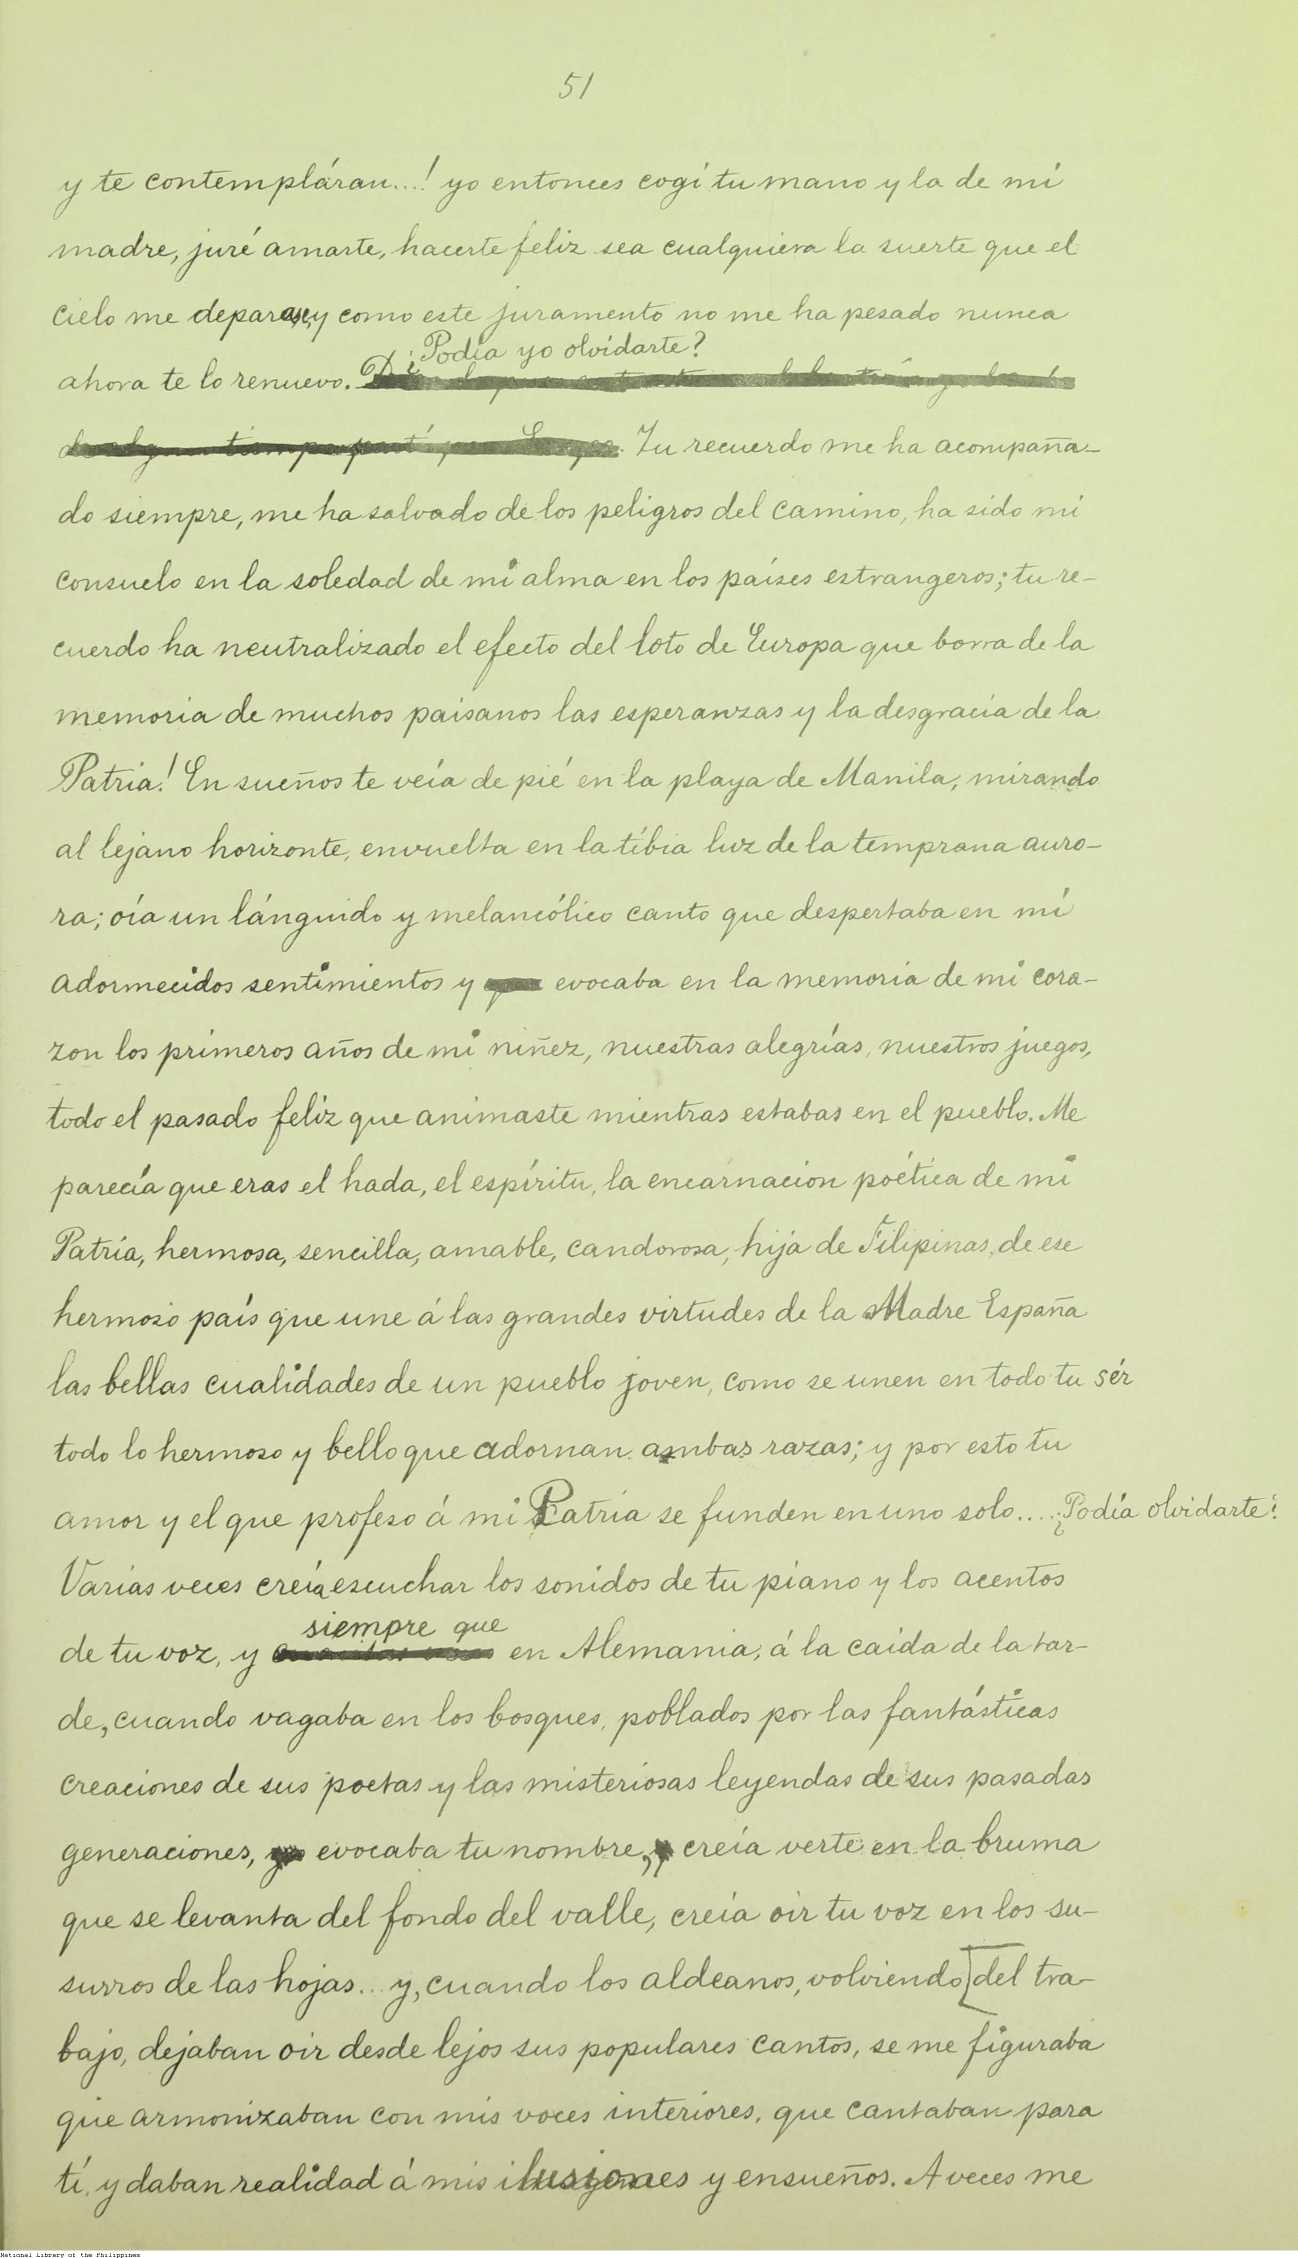 51
y te contempláran...! yo entonces cogí tu mano y la de mi
madre, juré amarte, hacerte feliz sea cualquiera la suerte que el
cielo me deparase, y como este juramento no me ha pesado nunca
¿Podía yo olvidarte?
ahora te lo renuevo.
Tu recuerdo me ha acompaña-
do siempre, me ha salvado de los peligros del camino, ha sido mi
consuelo en la soledad de mi alma en los países estrangeros; tu re-
cuerdo ha neutralizado el efecto del loto de Europa que borra de la
memoria de muchos paisanos las esperanzas y la desgracia de la
Patria! En sueños te veía de pié en la playa de Manila, mirando
al lejano horizonte, envuelta en la tíbia luz de la temprana auro-
ra; oía un lánguido y melancólico canto que despertaba en mí
adormecidos sentimientos y evocaba en la memoria de mi cora-
zon los primeros años de mi niñez, nuestras alegrías, nuestros juegos,
todo el pasado feliz que animaste mientras estabas en el pueblo. Me
parecía que eras el hada, el espíritu, la encarnacion poética de mi
Patria, hermosa, sencilla, amable, candorosa, hija de Filipinas, de ese
hermoso país que une á las grandes virtudes de la Madre España
las bellas cualidades de un pueblo joven, como se unen en todo tu sér
todo lo hermoso y bello que adornan ambas razas; y por esto tu
amor y el que profeso á mi Patria se funden en uno solo.... ¿Podía olvidarte?
Varias veces creía escuchar los sonidos de tu piano y los acentos
siempre que
de tu voz, y en Alemania, á la caida de la tar-
de, cuando vagaba en los bosques, poblados por las fantásticas
creaciones de sus poetas y las misteriosas leyendas de sus pasadas
generaciones, evocaba tu nombre, creía verte en la bruma
que se levanta del fondo del valle, creía oir tu voz en los su-
surros de las hojas... y, cuando los aldeanos, volviendo [del tra-
bajo, dejaban oir desde lejos sus populares cantos, se me figuraba
que armonizaban con mis voces interiores, que cantaban para
tí, y daban realidad á mis ilusiones y ensueños. A veces me
National Library of the Philippines